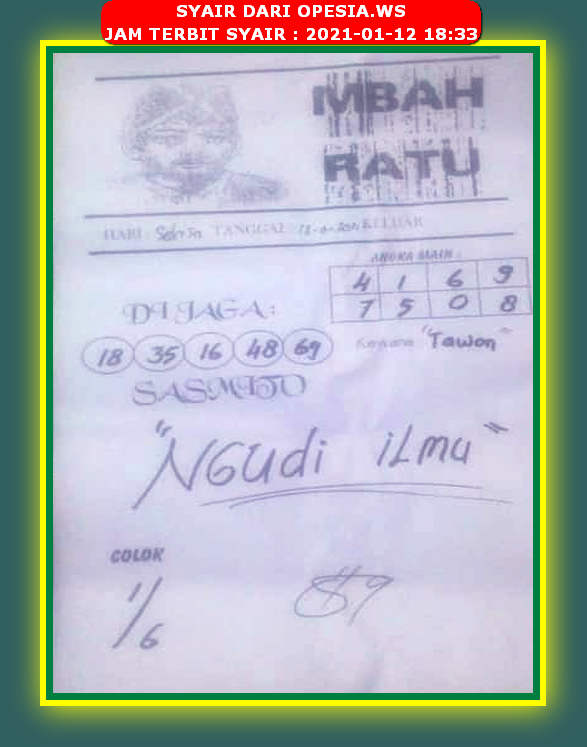 SYAIR DARI OPESIA.WS
JAM TERBIT SYAIR : 2021-01-12 18:33
MBAH
RATU
HARI : TANGGAL KELUAR
ANGKA MAIN :
4 1 6 9
7 5 0 8
DI JAGA:
18 35 16 48 69
"Tawon"
SASMITO
"NGUdi iLmu"
COLOK
1/6
89